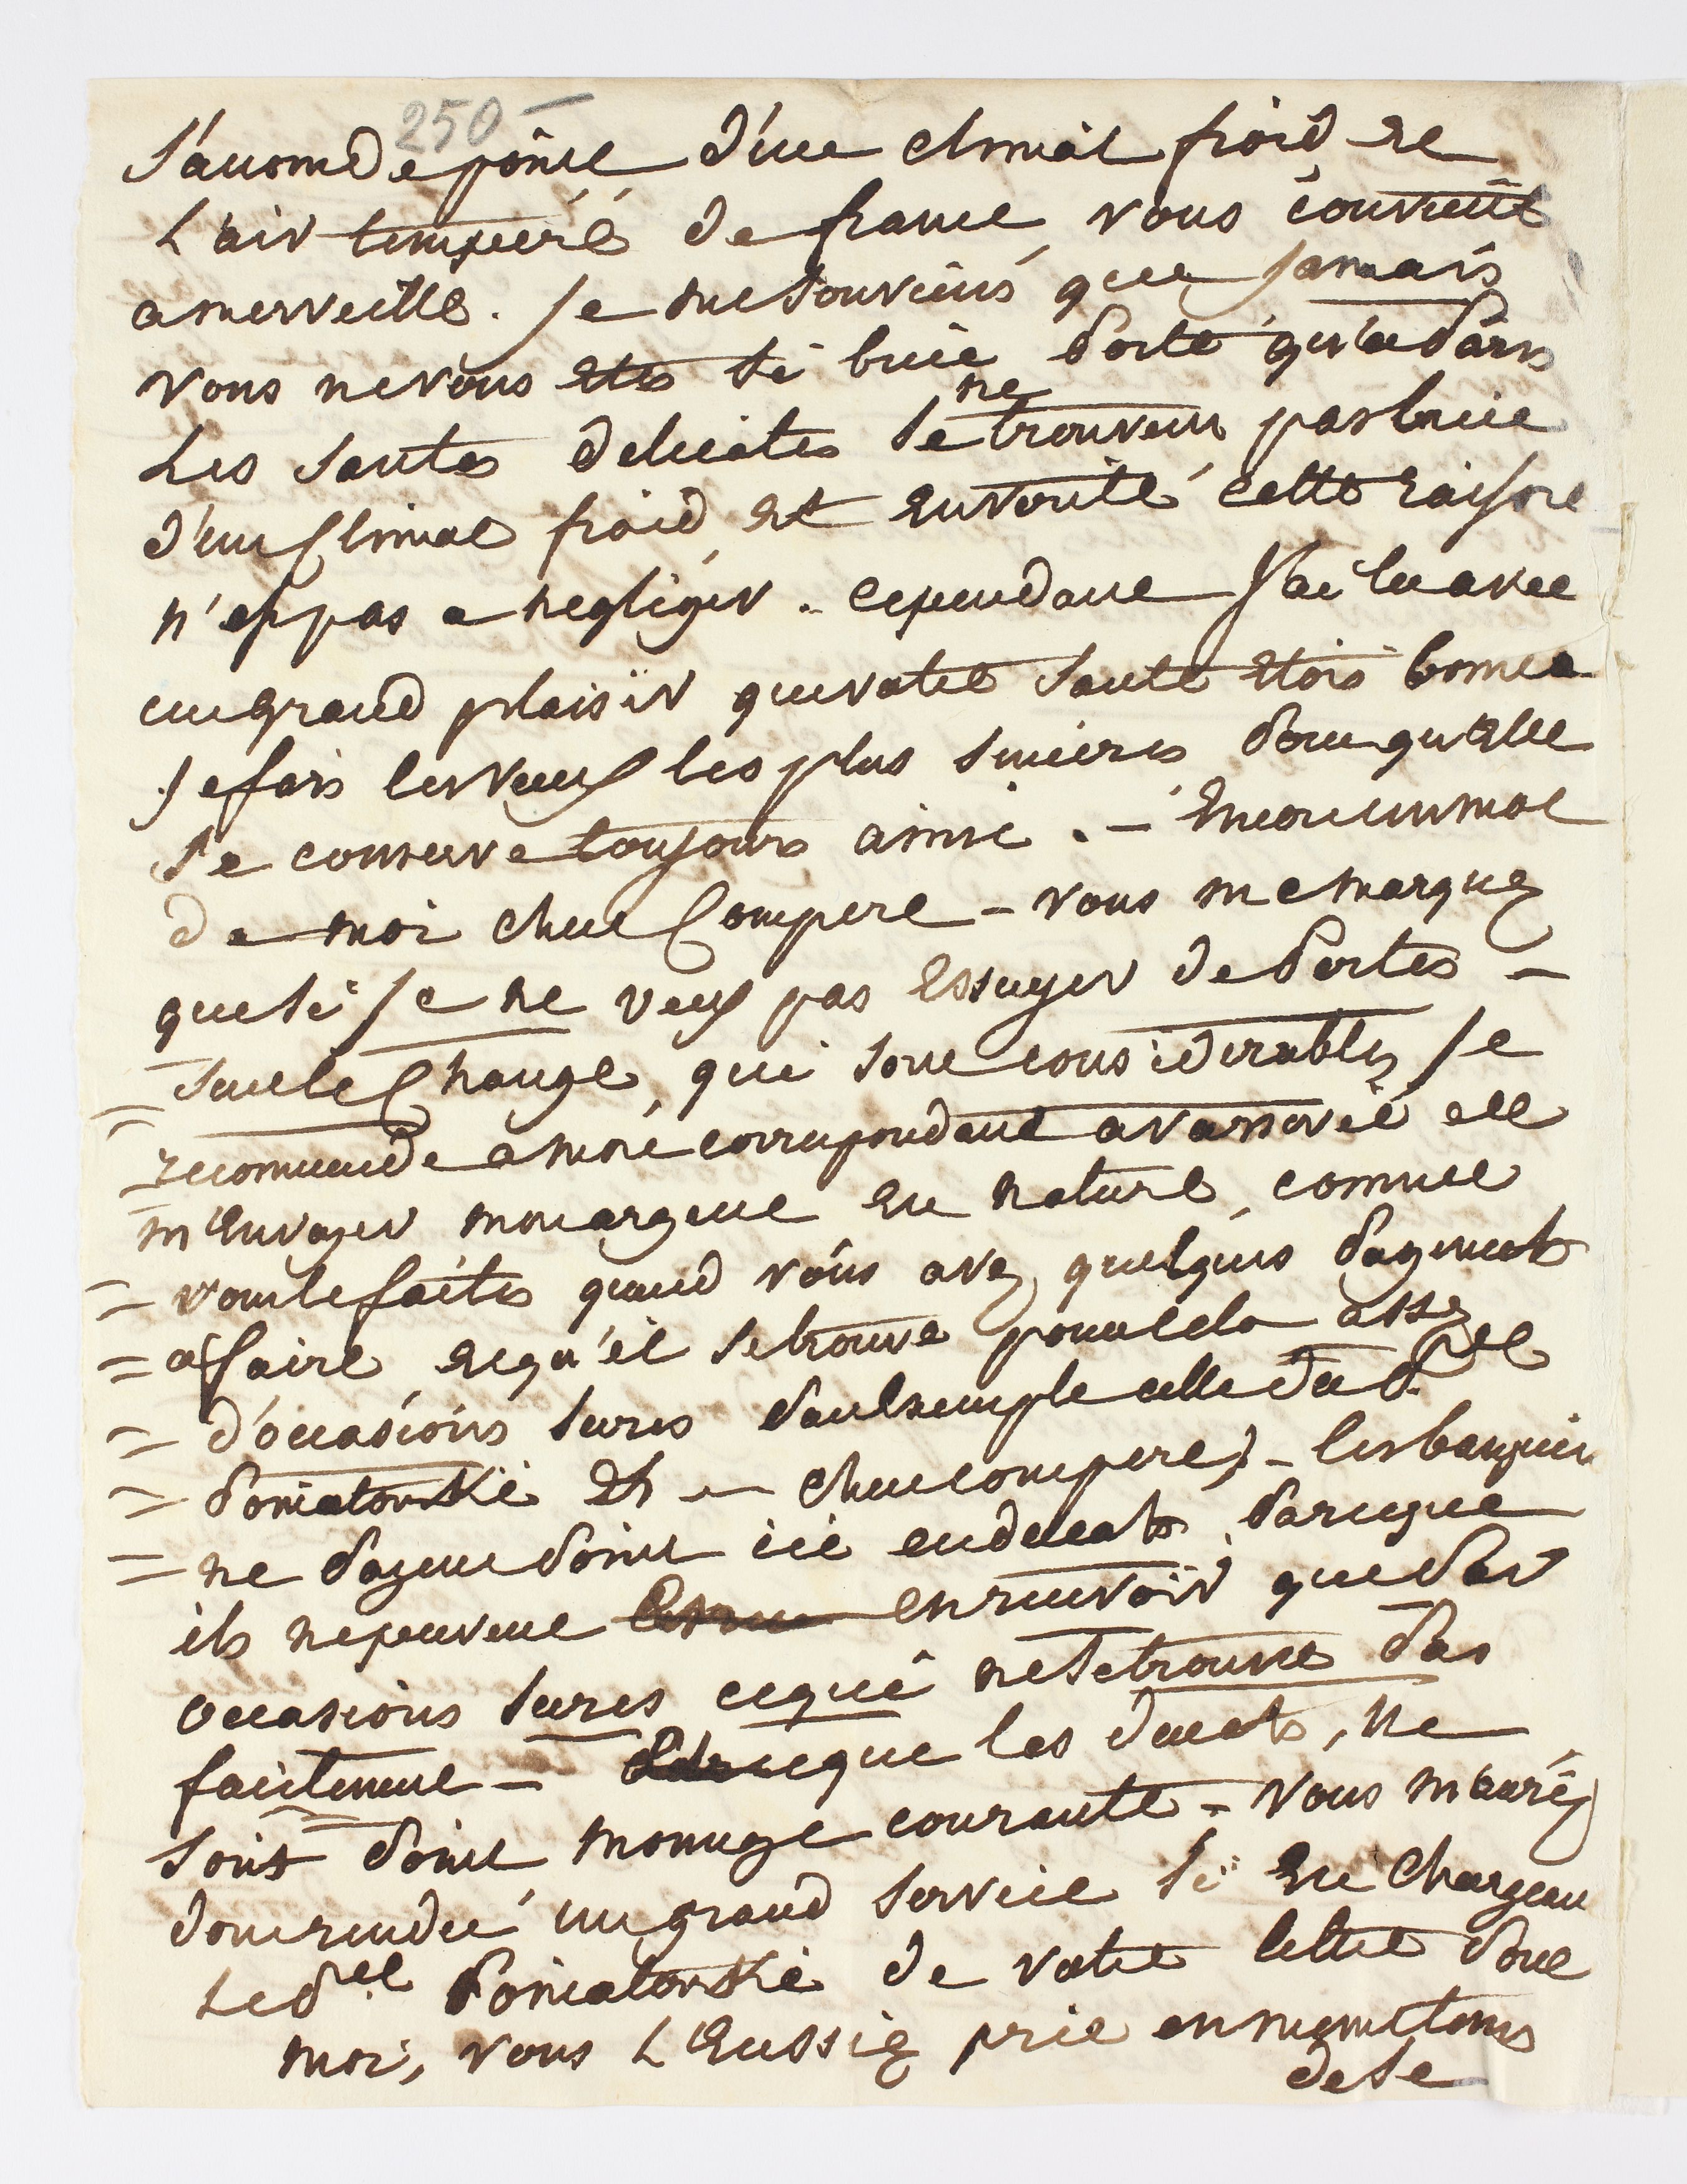 250 —
s'acomode point d'un climat froid et
L'air temperé de france vous convient
a merveille. Je me souviens que jamais
vous ne vous etes si bien porté qu'a Paris
Les santes delicates se ne trouvent pas bien
d'un Climat froid, et en verité cette raison
n'est pas a negliger. cependant J'ai lu avec
un grand plaisir que votre santé etois bonne
Je fais les vœux les plus sinceres pour qu'elle
se conserve toujours ainsi. — Encore un mot
de moi cher Compere — vous me marquez
que si je ne veux pas essuyer de Pertes —
= sur le Change, qui sont considerables, je
recommande a mon correspondant a varsovie de
m'envoyer mon argent en nature, comme
= vous le faites quand vous avez quelques Payments
= a faire et qu'il se trouve pour cela assez
= d'occasions sures Par exemple celle du P.ce
= Poniatowski etc — cher compere) — les banquiers
= ne Payent Point ici en ducats, Parceque
ils ne peuvent en recevoir que Par
occasions sures ce qui ne se trouve Pas
facilement — Parceque les ducats, ne
sont Point monnaye courante — Vous m'auriez
donc rendu un grand service si en chargeant
Le P.ce Poniatowski de votre lettre Pour
moi, vous L'Eussiez prié en meme tems
de se